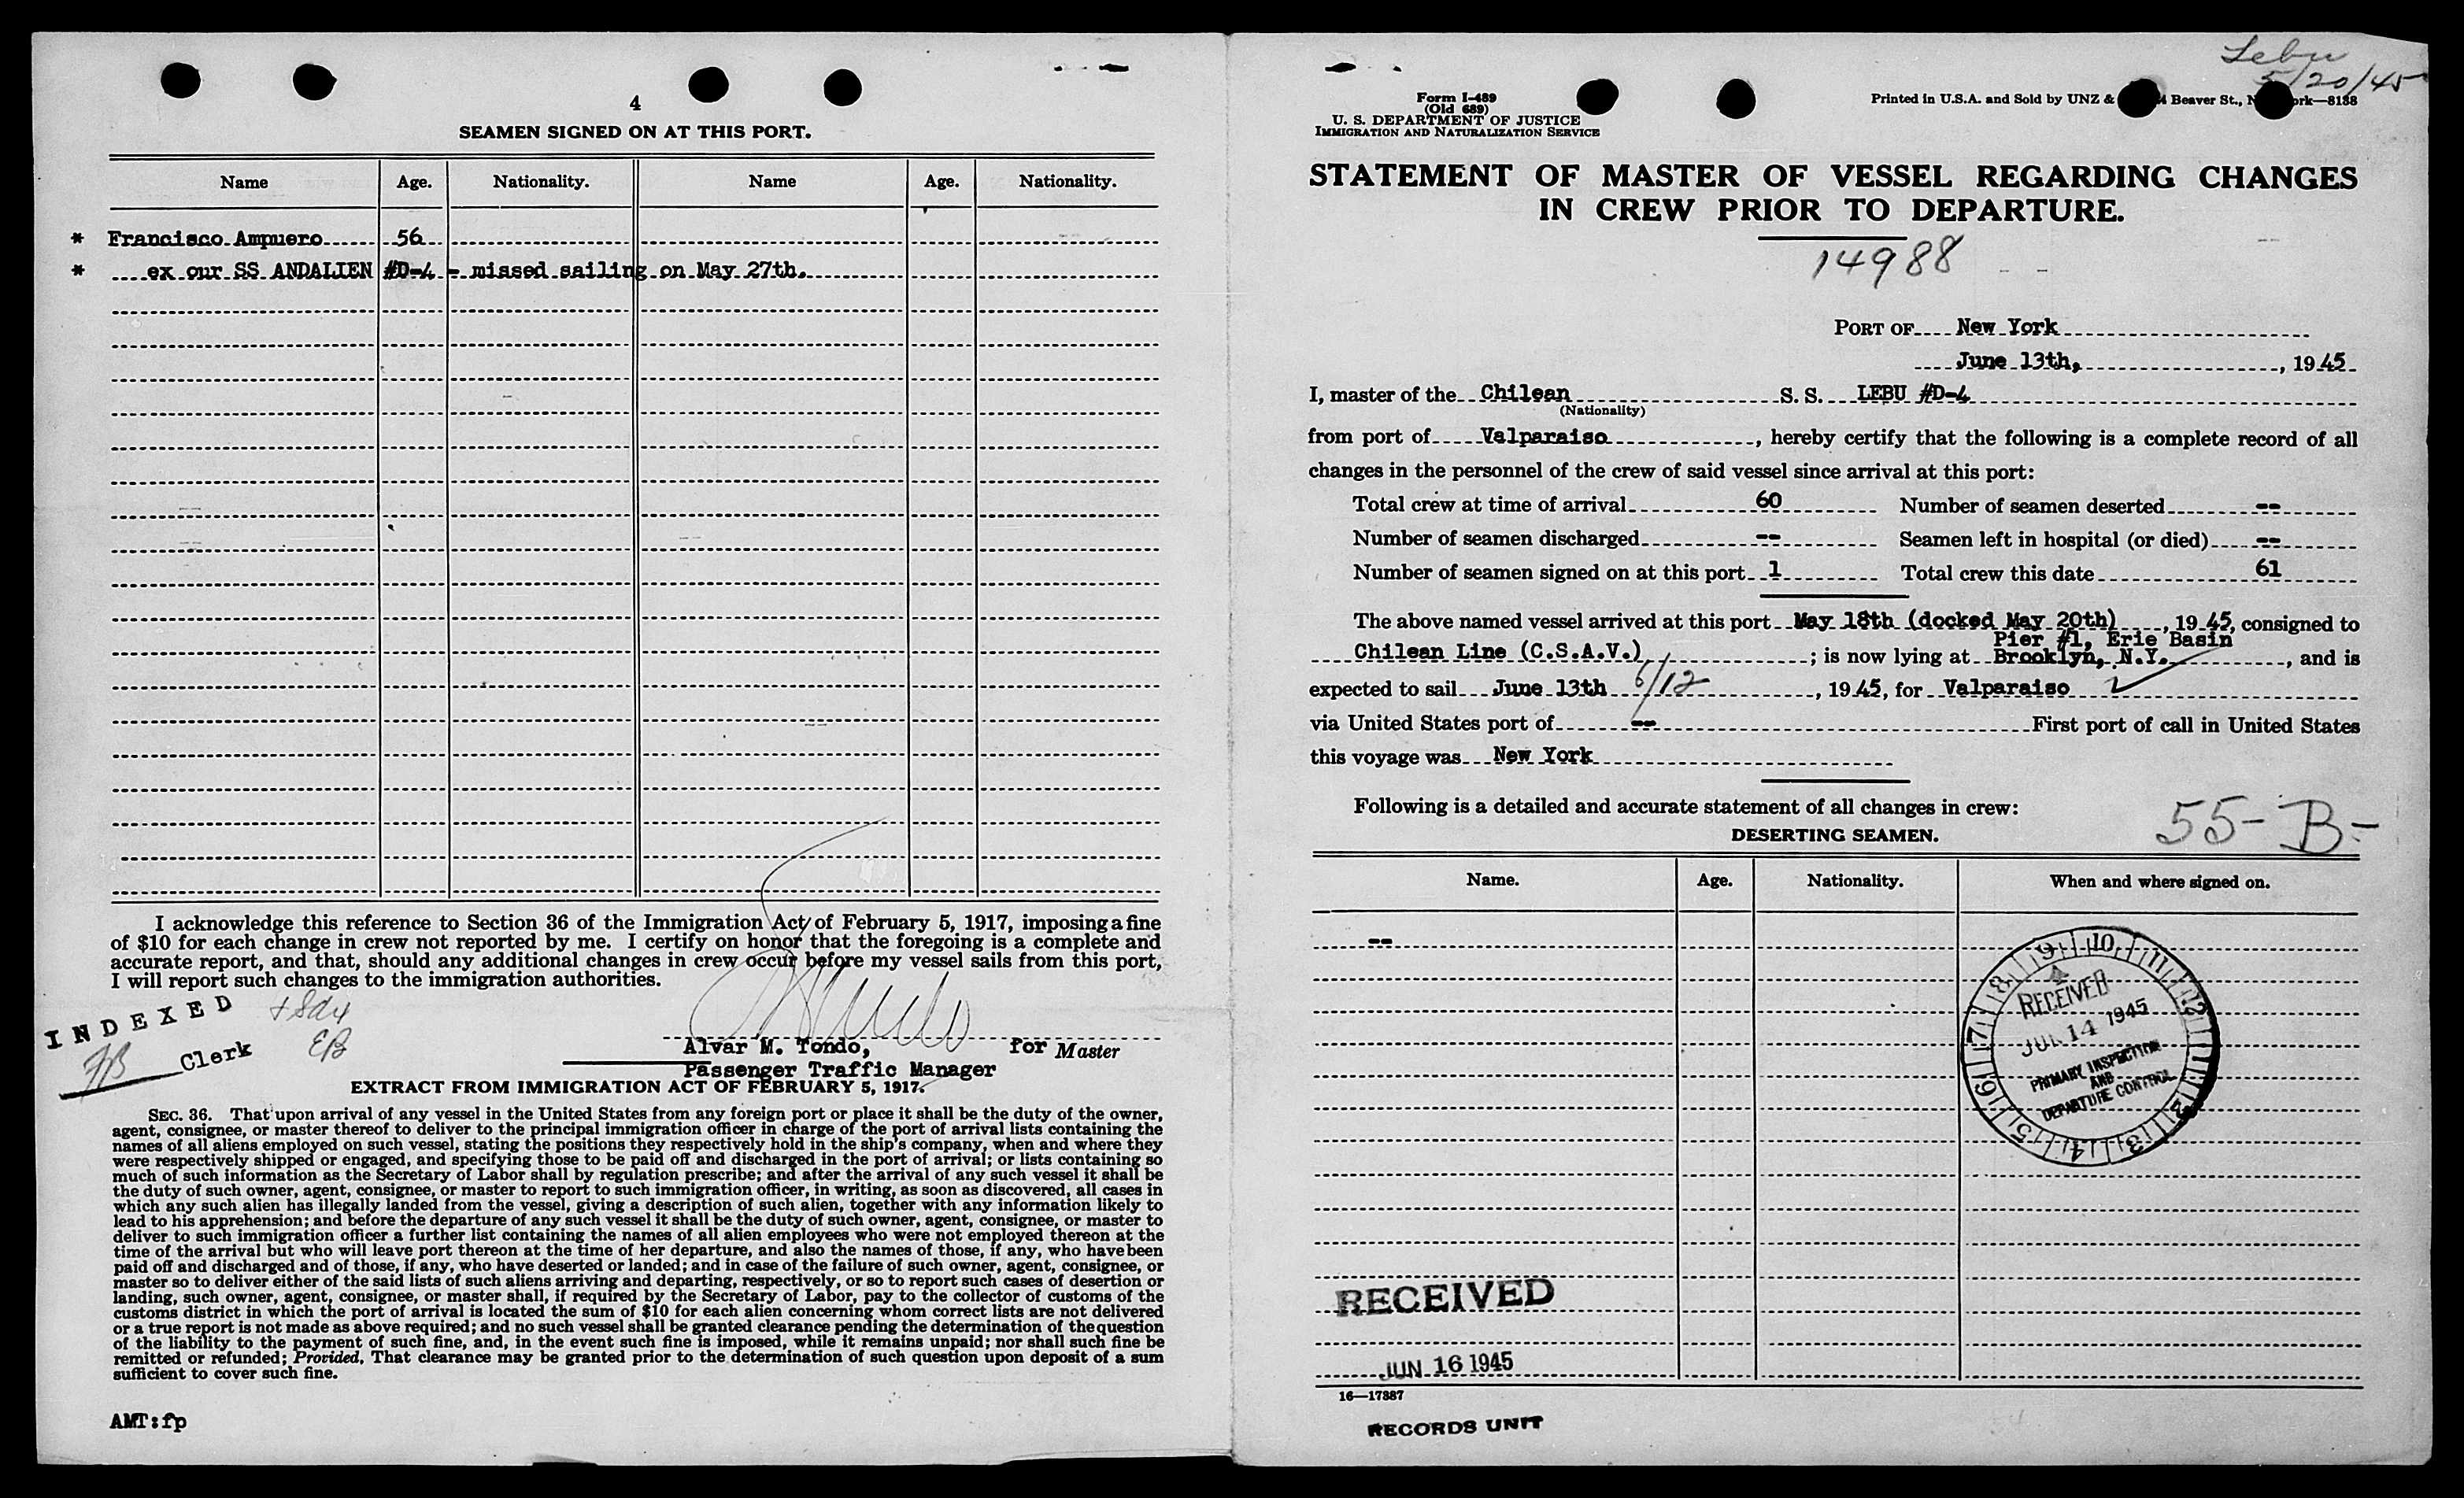 4
SEAMEN SIGNED ON AT THIS PORT.
Name Age. Nationality. Name Age. Nationality.
* Francisco Ampuero 56
* ex our SS ANDALIEN #D-4 - missed sailing on May 27th.
I acknowledge this reference to Section 36 of the Immigration Act of February 5, 1917, imposing a fine
of $10 for each change in crew not reported by me. I certify on honor that the foregoing is a complete and
accurate report, and that, should any additional changes in crew occur before my vessel sails from this port,
I will report such changes to the immigration authorities.
INDEXED
Clerk
EB
Alvar M. Tondo, for Master
Passenger Traffic Manager
EXTRACT FROM IMMIGRATION ACT OF FEBRUARY 5, 1917.
SEC. 36. That upon arrival of any vessel in the United States from any foreign port or place it shall be the duty of the owner,
agent, consignee, or master thereof to deliver to the principal immigration officer in charge of the port of arrival lists containing the
names of all aliens employed on such vessel, stating the positions they respectively hold in the ship's company, when and where they
were respectively shipped or engaged, and specifying those to be paid off and discharged in the port of arrival; or lists containing so
much of such information as the Secretary of Labor shall by regulation prescribe; and after the arrival of any such vessel it shall be
the duty of such owner, agent, consignee, or master to report to such immigration officer, in writing, as soon as discovered, all cases in
which any such alien has illegally landed from the vessel, giving a description of such alien, together with any information likely to
lead to his apprehension; and before the departure of any such vessel it shall be the duty of such owner, agent, consignee, or master to
deliver to such immigration officer a further list containing the names of all alien employees who were not employed thereon at the
time of the arrival but who will leave port thereon at the time of her departure, and also the names of those, if any, who have been
paid off and discharged and of those, if any, who have deserted or landed; and in case of the failure of such owner, agent, consignee, or
master so to deliver either of the said lists of such aliens arriving and departing, respectively, or so to report such cases of desertion or
landing, such owner, agent, consignee, or master shall, if required by the Secretary of Labor, pay to the collector of customs of the
customs district in which the port of arrival is located the sum of $10 for each alien concerning whom correct lists are not delivered
or a true report is not made as above required; and no such vessel shall be granted clearance pending the determination of the question
of the liability to the payment of such fine, and, in the event such fine is imposed, while it remains unpaid; nor shall such fine be
remitted or refunded; Provided, That clearance may be granted prior to the determination of such question upon deposit of a sum
sufficient to cover such fine.
AMT:fp
Lebu
5/20/45
Form I-489
(Old 689)
U. S. DEPARTMENT OF JUSTICE
IMMIGRATION AND NATURALIZATION SERVICE
Printed in U.S.A. and Sold by UNZ & Beaver St., N ork—8138
STATEMENT OF MASTER OF VESSEL REGARDING CHANGES
IN CREW PRIOR TO DEPARTURE.
14988
PORT OF New York
June 13th, , 1945
I, master of the Chilean S. S. LEBU #D-4
(Nationality)
from port of Valparaiso , hereby certify that the following is a complete record of all
changes in the personnel of the crew of said vessel since arrival at this port:
Total crew at time of arrival 60 Number of seamen deserted --
Number of seamen discharged -- Seamen left in hospital (or died) --
Number of seamen signed on at this port 1 Total crew this date 61
The above named vessel arrived at this port May 18th (docked May 20th) , 1945, consigned to
Pier #1, Erie Basin
Chilean Line (C.S.A.V.) ; is now lying at Brooklyn, N.Y. , and is
expected to sail June 13th 6/12 , 1945, for Valparaiso
via United States port of -- First port of call in United States
this voyage was New York
Following is a detailed and accurate statement of all changes in crew:
55-B-
DESERTING SEAMEN.
Name. Age. Nationality. When and where signed on.
--
9 10 11 12 1 2 3 4 5 6 7 8
RECEIVED
JUN 14 1945
PRIMARY INSPECTION
AND
DEPARTURE CONTROL
RECEIVED
JUN 16 1945
16—17387
RECORDS UNIT